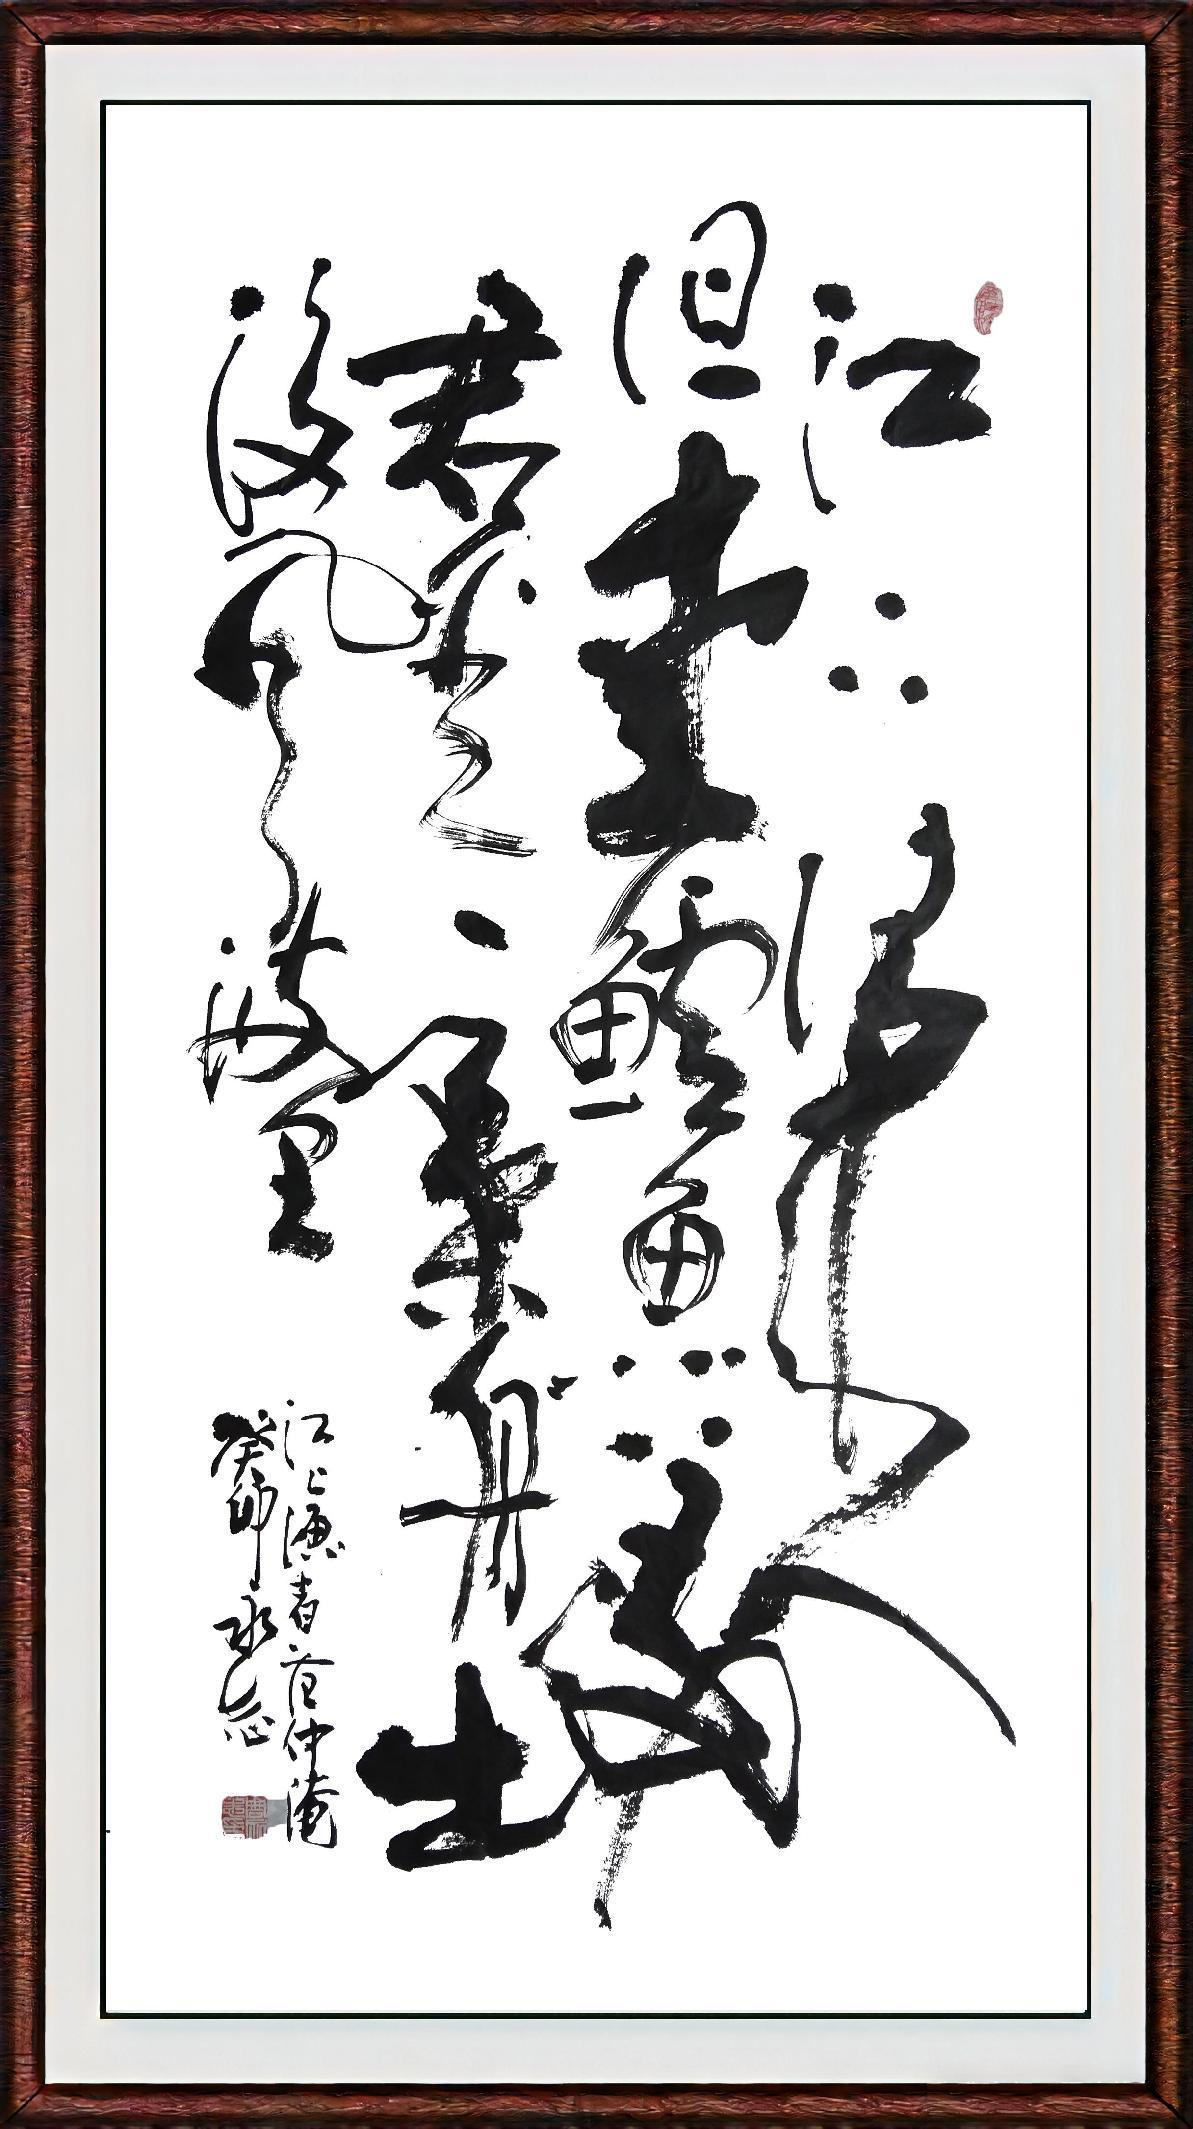 江上往来人
但爱鲈鱼美
君看一叶舟出
没风波里
江上渔者范仲淹
癸卯永志